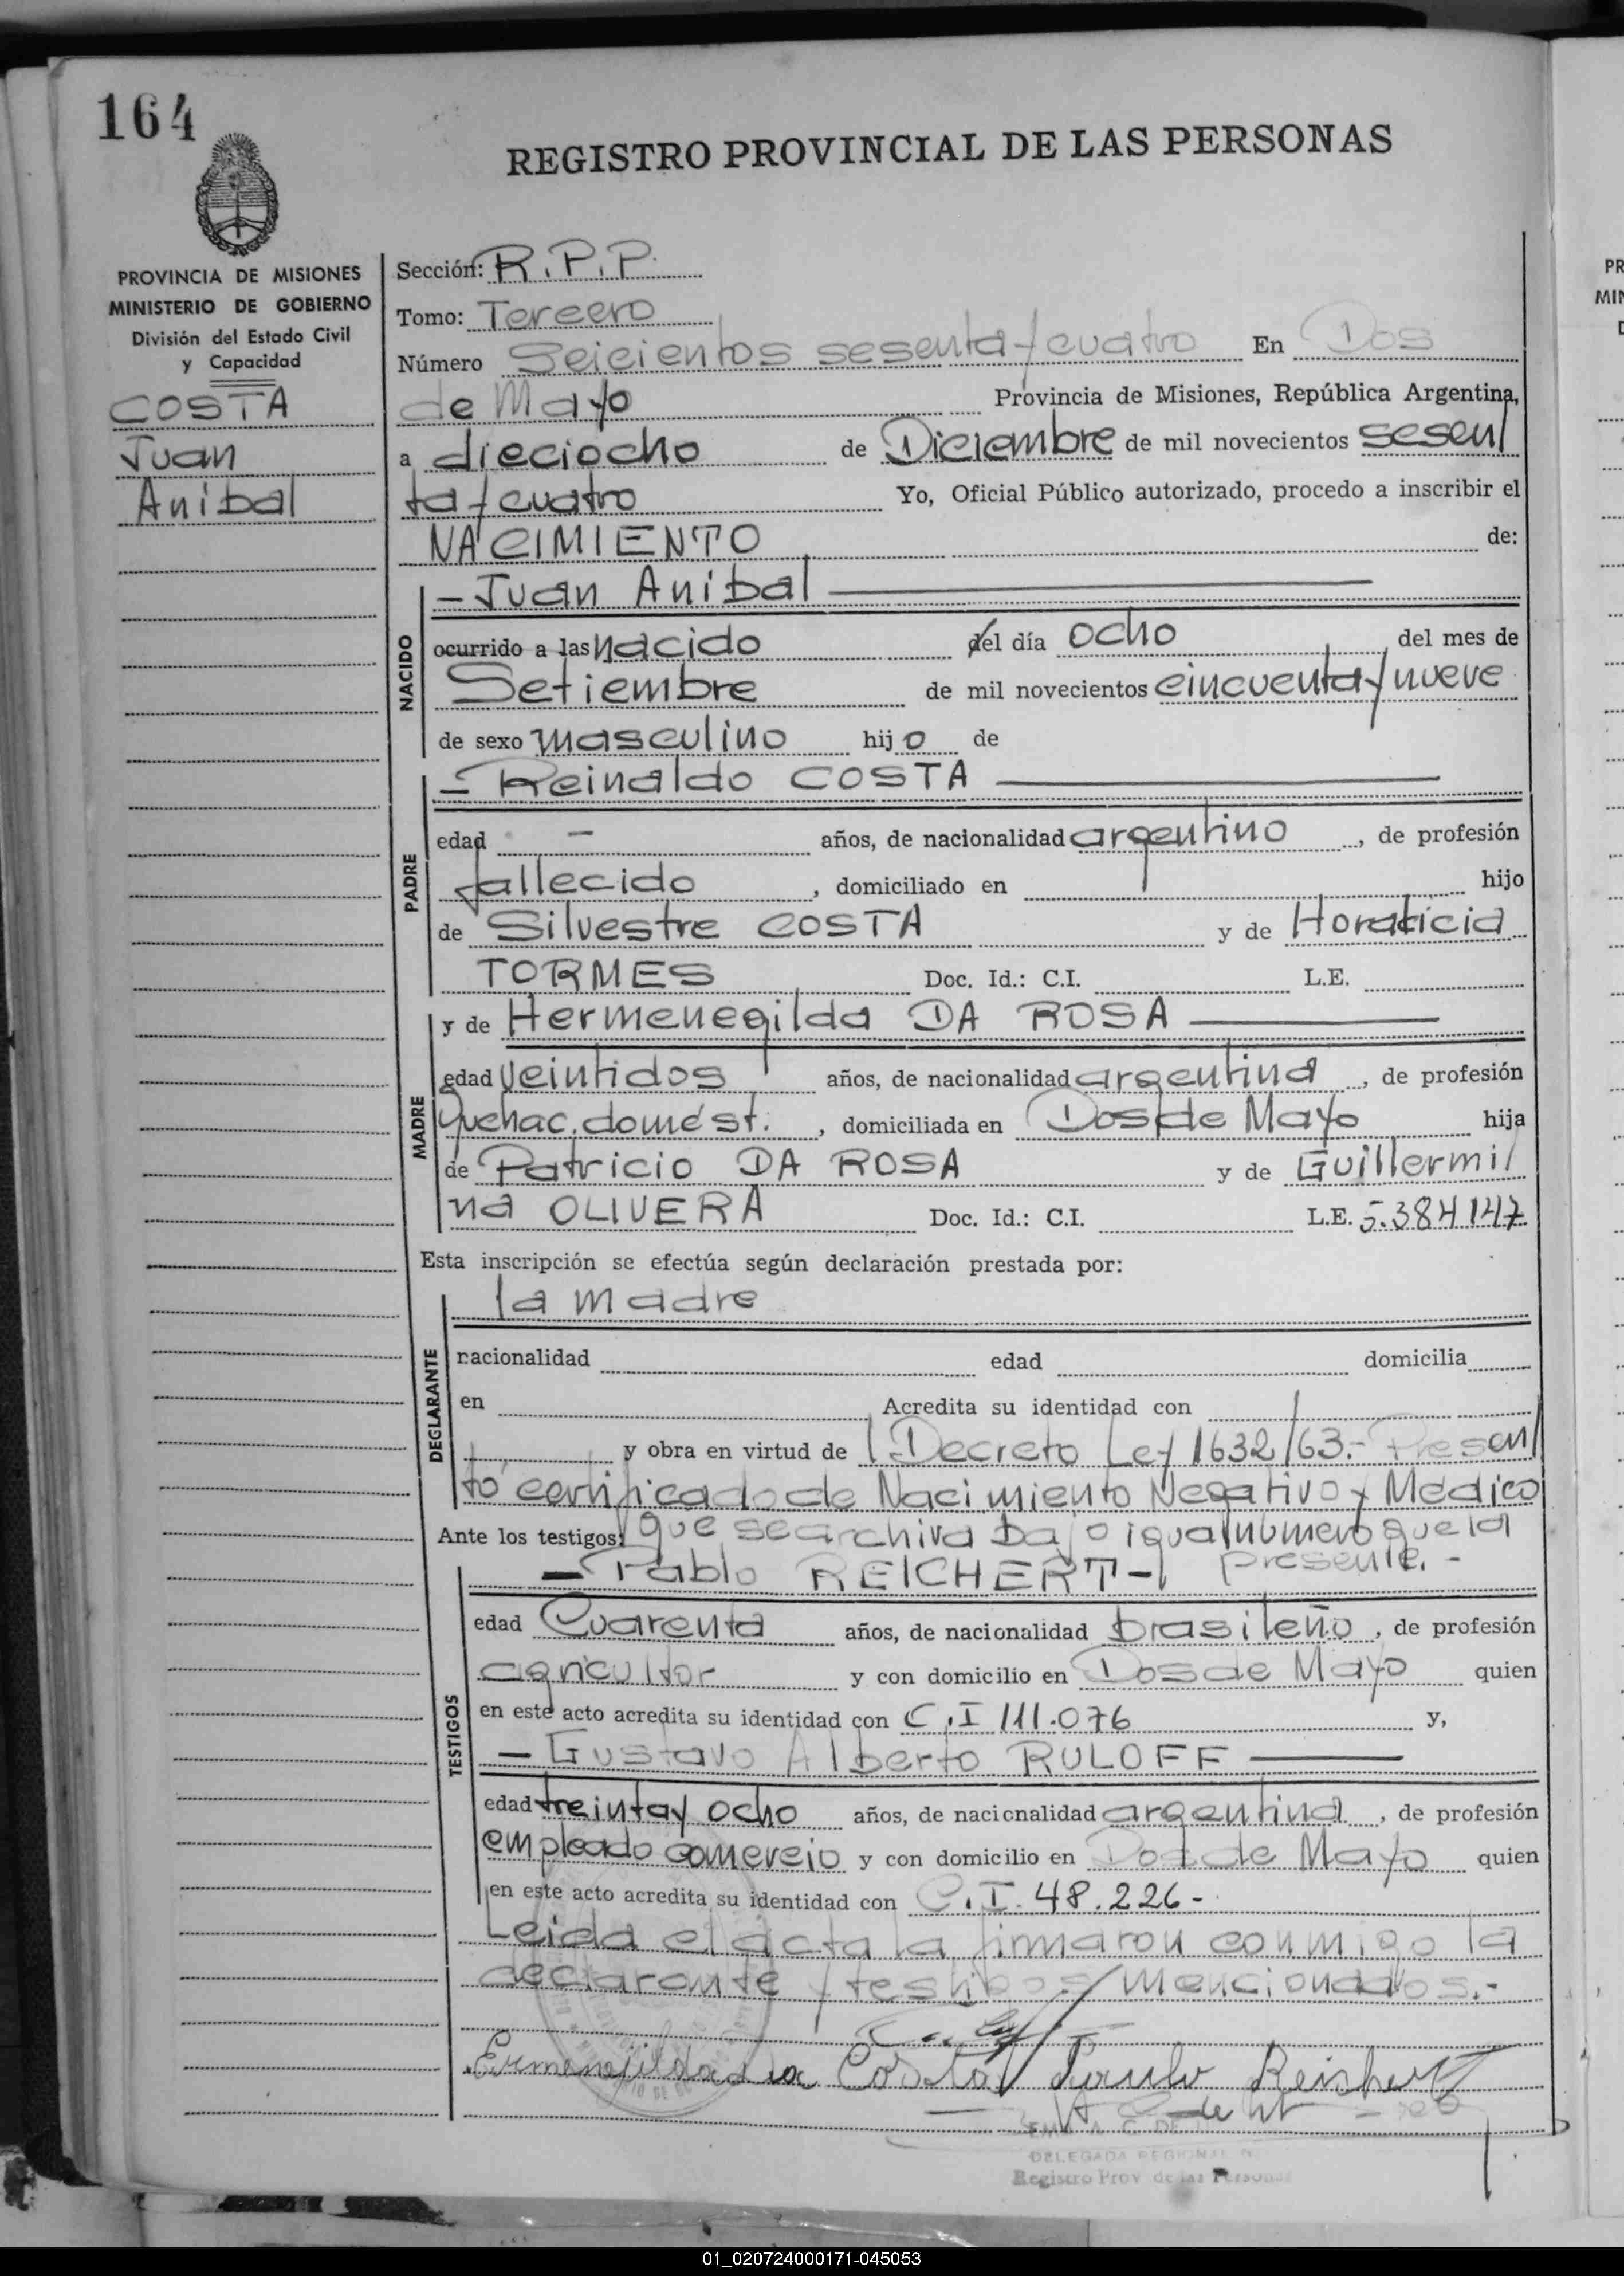 164
REGISTRO PROVINCIAL DE LAS PERSONAS
PROVINCIA DE MISIONES
MINISTERIO DE GOBIERNO
División del Estado Civil
y Capacidad
COSTA
Juan
Anibal
Sección: R.P.P.
Tomo: Tercero
Número Seicientos sesenta y cuatro En Dos
de Mayo Provincia de Misiones, República Argentina,
a dieciocho de Diciembre de mil novecientos sesen/
ta y cuatro Yo, Oficial Público autorizado, procedo a inscribir el
NACIMIENTO de:
NACIDO
- Juan Anibal
ocurrido a las nacido del día ocho del mes de
Setiembre de mil novecientos cincuenta y nueve
de sexo masculino hijo de
PADRE
- Reinaldo COSTA
edad - años, de nacionalidad argentino, de profesión
fallecido, domiciliado en hijo
de Silvestre COSTA y de Horaticia
TORMES Doc. Id.: C.I. L.E.
MADRE
y de Hermenegilda DA ROSA
edad veintidos años, de nacionalidad argentina, de profesión
Quehac. domést., domiciliada en Dos de Mayo hija
de Patricio DA ROSA y de Guillermi/
na OLIVERA Doc. Id.: C.I. L.E. 5.384147
Esta inscripción se efectúa según declaración prestada por:
DECLARANTE
la madre
nacionalidad edad domicilia
en Acredita su identidad con
y obra en virtud de Decreto Ley 1632/63.- Presen/
tó certificado de Nacimiento Negativo y Medico
Ante los testigos: que se archiva bajo igual número que la
presente.-
TESTIGOS
- Pablo REICHERT -
edad Cuarenta años, de nacionalidad brasileño, de profesión
agricultor y con domicilio en Dos de Mayo quien
en este acto acredita su identidad con C.I 111.076 y,
- Gustavo Alberto RULOFF
edad treinta y ocho años, de nacionalidad argentina, de profesión
empleado comercio y con domicilio en Dos de Mayo quien
en este acto acredita su identidad con C.I. 48.226-
Leida el acta la firmaron conmigo la
declarante y testigos mencionados.-
Ermenejilda da Costa Paulo Reichert
DELEGADA REGIONAL
Registro Prov. de las Personas
01_020724000171-045053